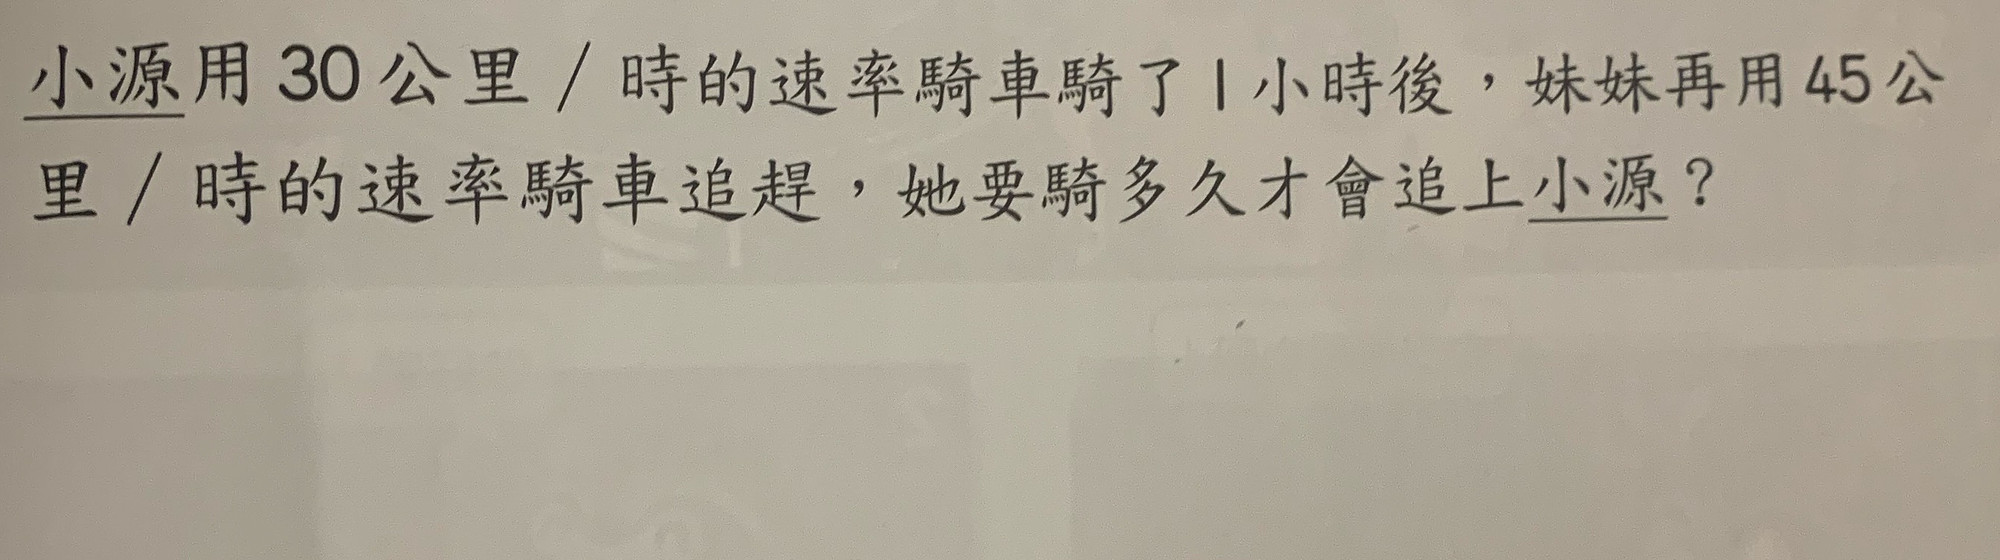 小源用30公里/時的速率騎車騎了1小時後，妹妹再用45公
里/時的速率騎車追趕，她要騎多久才會追上小源？